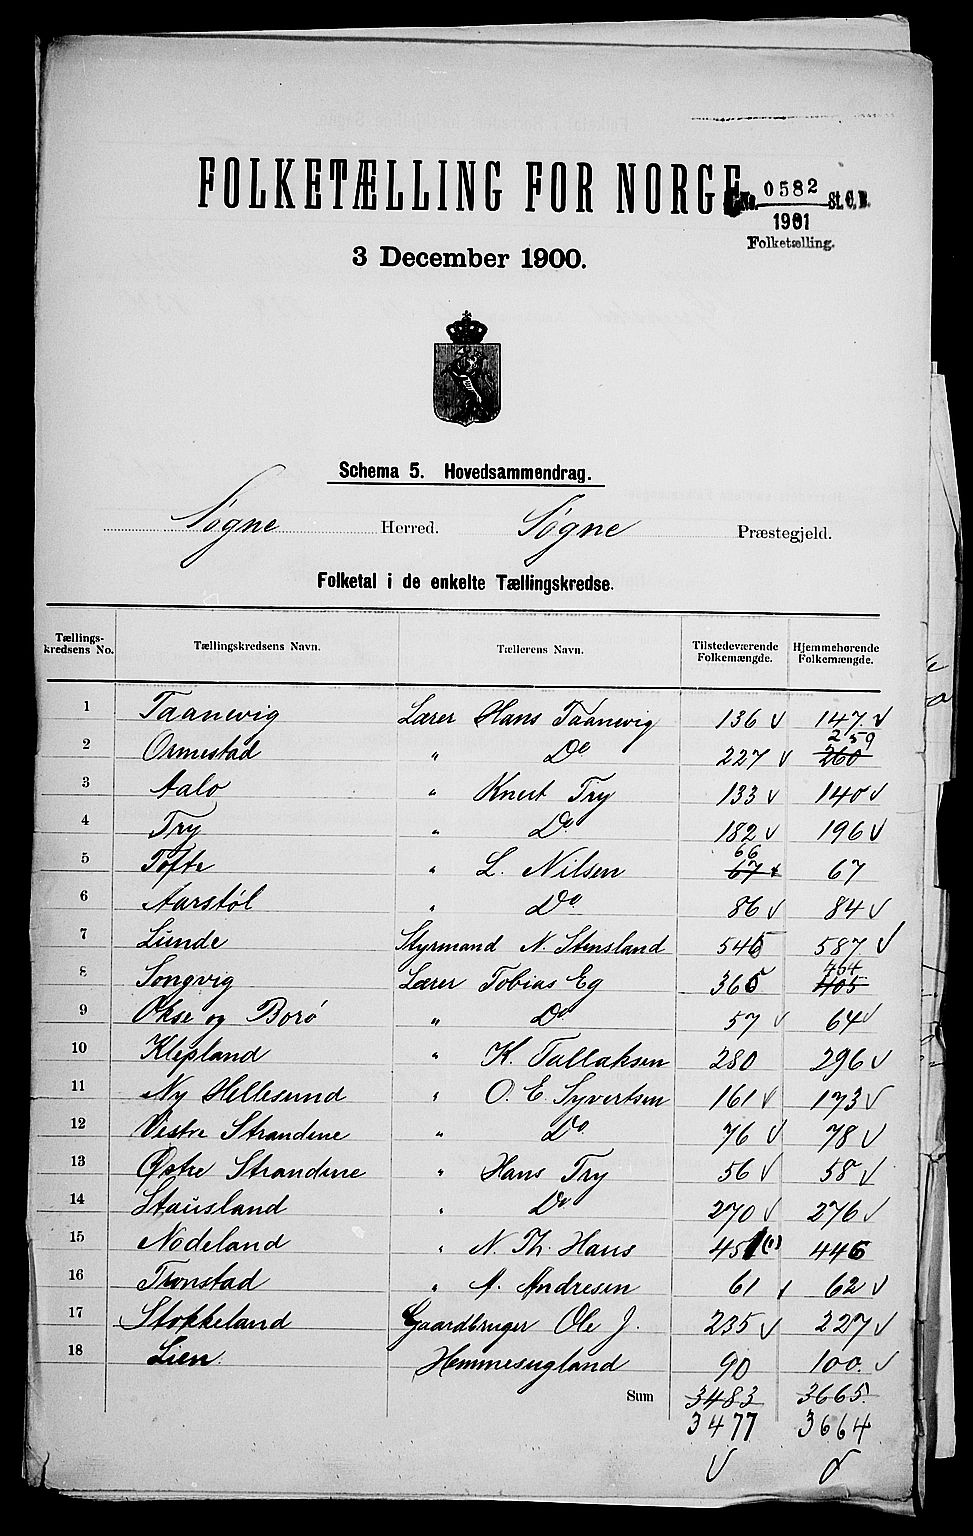 FOLKETÆLLING FOR NORGE
No. 0582 St. C. B.
1901
Folketælling.
3 December 1900.
Schema 5. Hovedsammendrag.
Søgne Herred. Søgne Præstegjeld.
Folketal i de enkelte Tællingskredse.
Tællings-kredsens No. Tællingskredsens Navn. Tællerens Navn. Tilstedeværende Folkemængde. Hjemmehørende Folkemængde.
1 Taanevig Lærer Hans Taanevig 136 147
2 Ormestad " Do 227 260 259
3 Aalo " Knut Try 133 140
4 Try " Do 182 196
5 Tofte " L. Nilsen 67 66 67
6 Aarstøl " Do 86 84
7 Lunde Styrmand N. Stensland 545 587
8 Songvig Lærer Tobias Eg 365 405 404
9 Okse og Borø " Do 57 64
10 Klepland " K. Tallaksen 280 296
11 Ny Hellesund " O. E. Syvertsen 161 173
12 Vestre Strandene " Do 76 78
13 Østre Strandene " Hans Try 56 58
14 Stausland " Do 270 276
15 Nodeland " N. Th. Haus 451 (1) 446
16 Tronstad " A. Andresen 61 62
17 Stokkeland Gaardbruger Ole J. 235 227
18 Lien. Hemmesugland 90 100.
Sum 3483 3665.
3477 3664